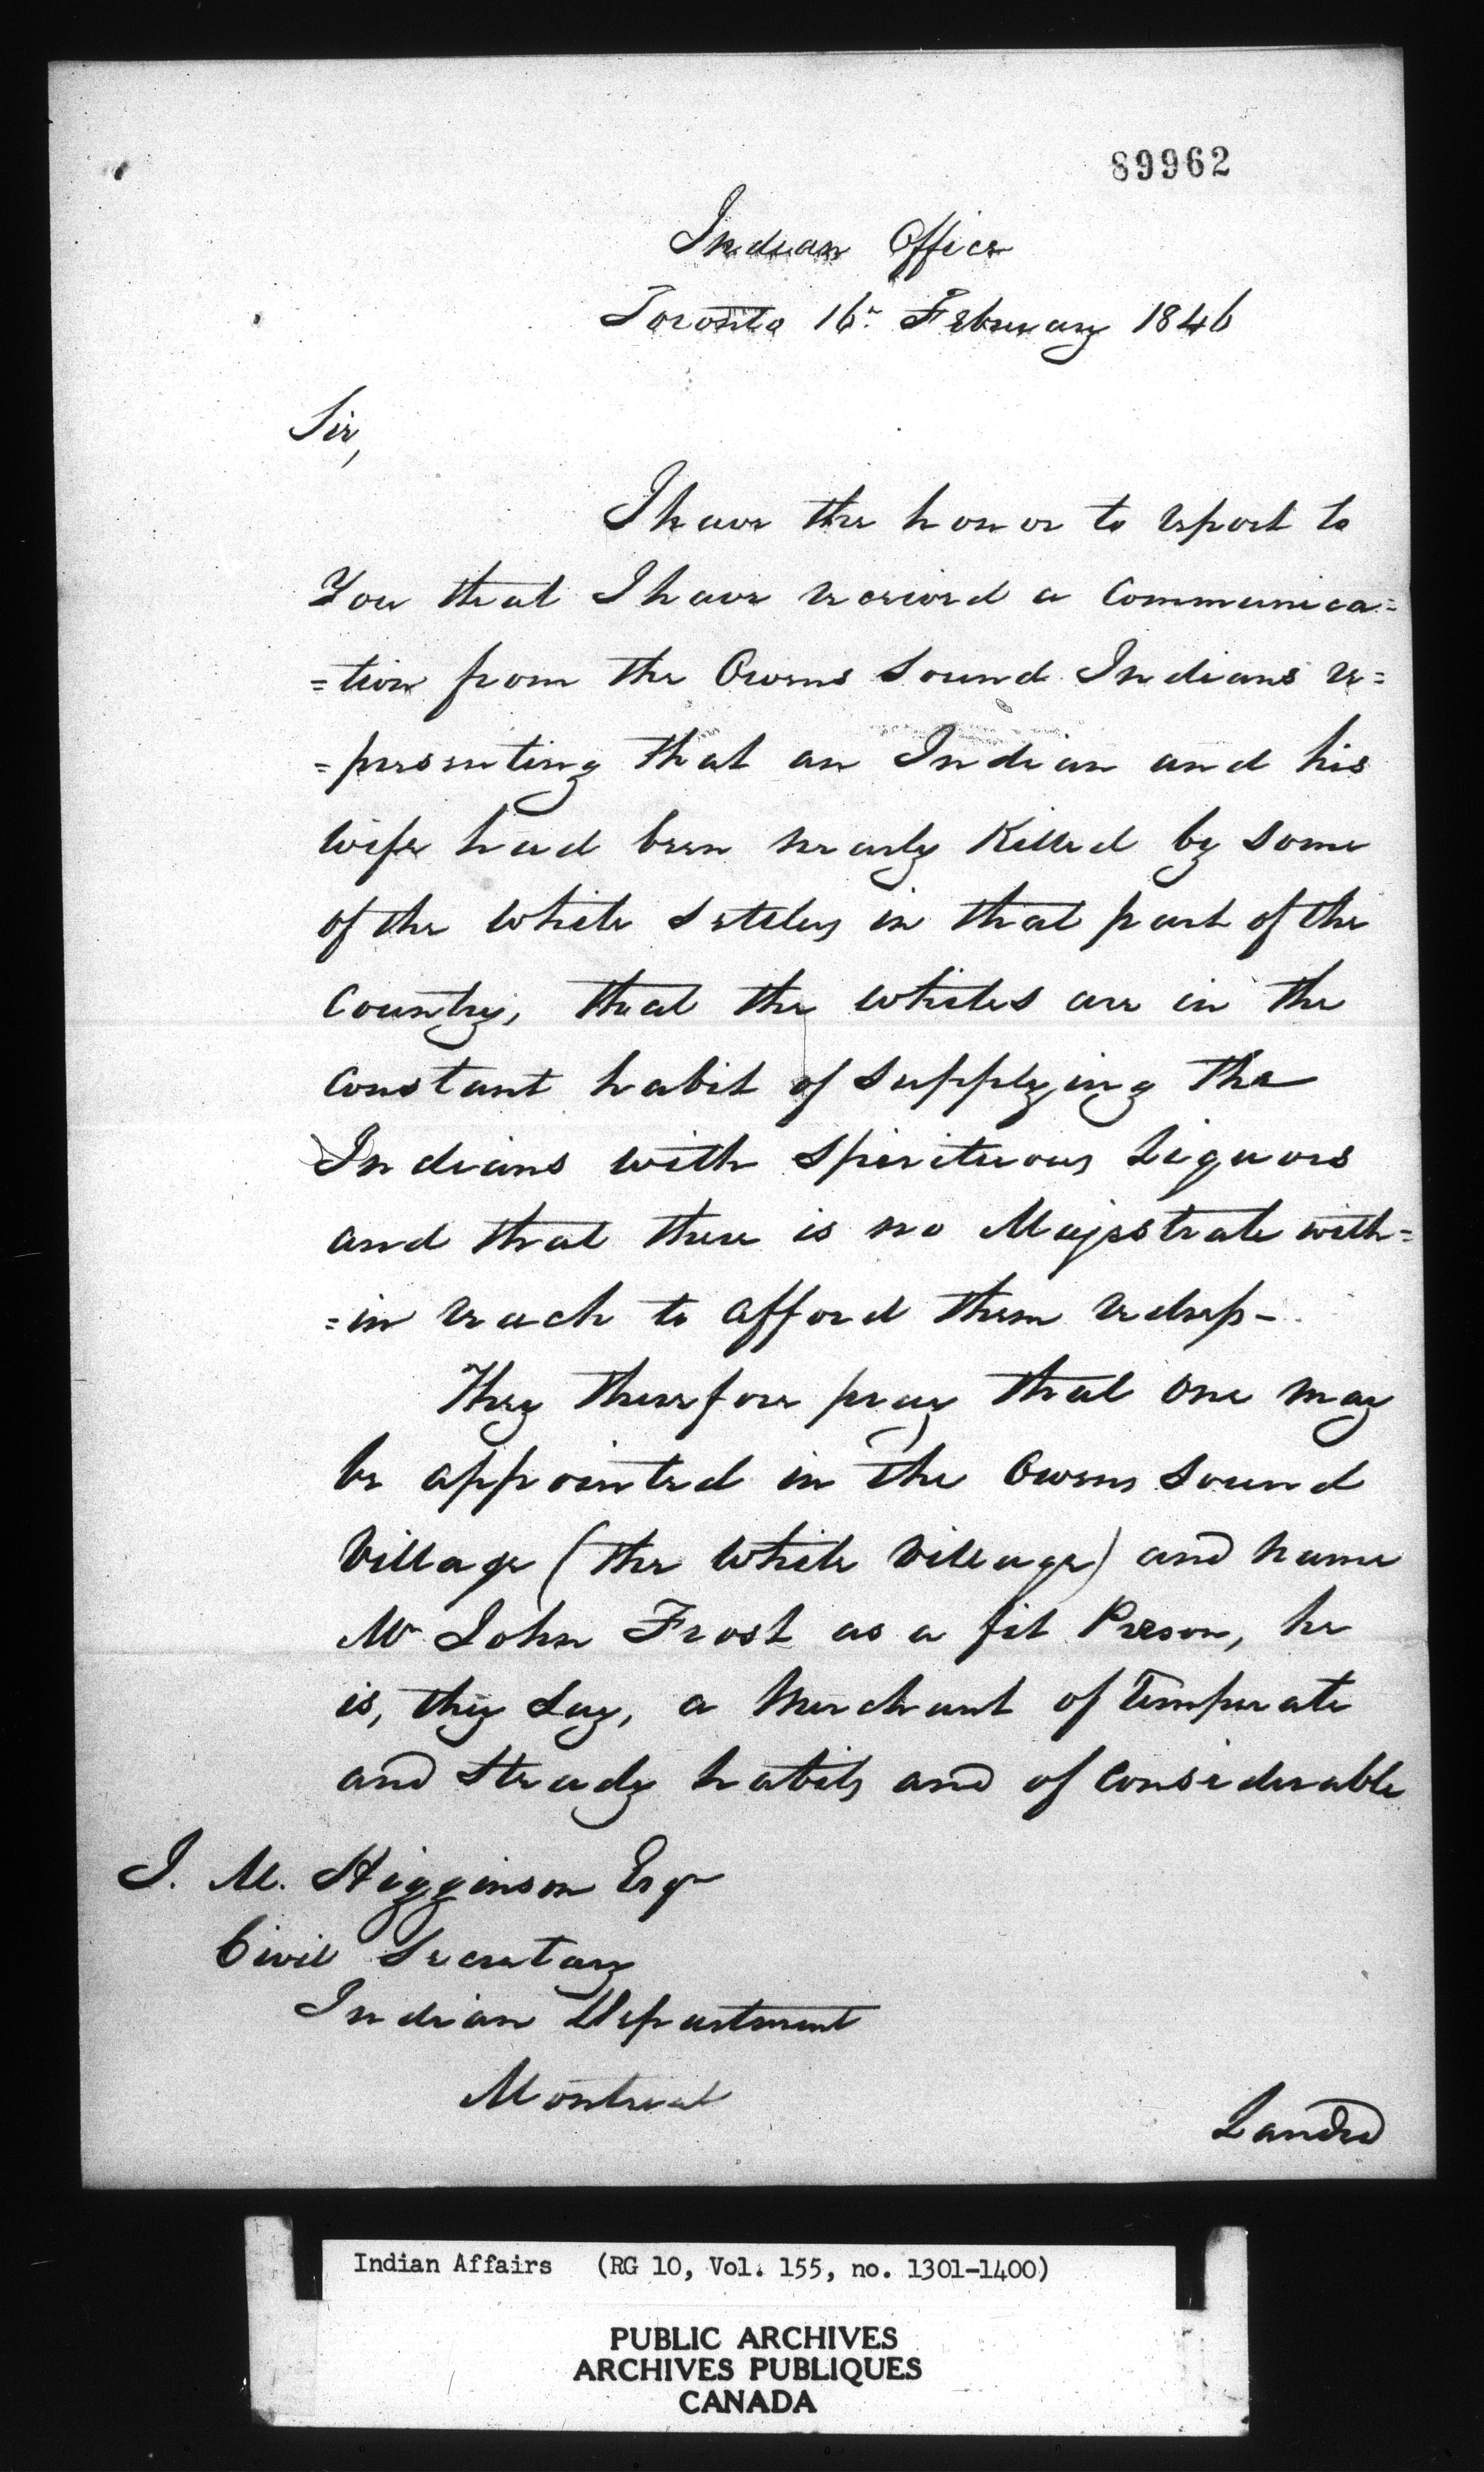 89962
Indian Office
Toronto 16th February 1846
Sir,
I have the honor to report to
You that I have received a Communica=
=tion from the Owens Sound Indians re=
=presenting that an Indian and his
Wife had been nearly Killed by Some
of the White Settlers in that part of the
Country, that the Whites are in the
Constant habit of Supplying the
Indians with Spirituous Liquors
and that there is no Magestrate with=
=in reach to afford them redress -
They therefore pray that one may
be appointed in the Owens Sound
Village (the White Village) and name
Mr John Frost as a fit Person, he
is, they Say, a Merchant of Temperate
and Steady habits and of Considerable
J. M. Higginson Esqr
Civil Secretary
Indian Department
Montreal
Landed
Indian Affairs (RG 10, Vol. 155, no. 1301-1400)
PUBLIC ARCHIVES
ARCHIVES PUBLIQUES
CANADA